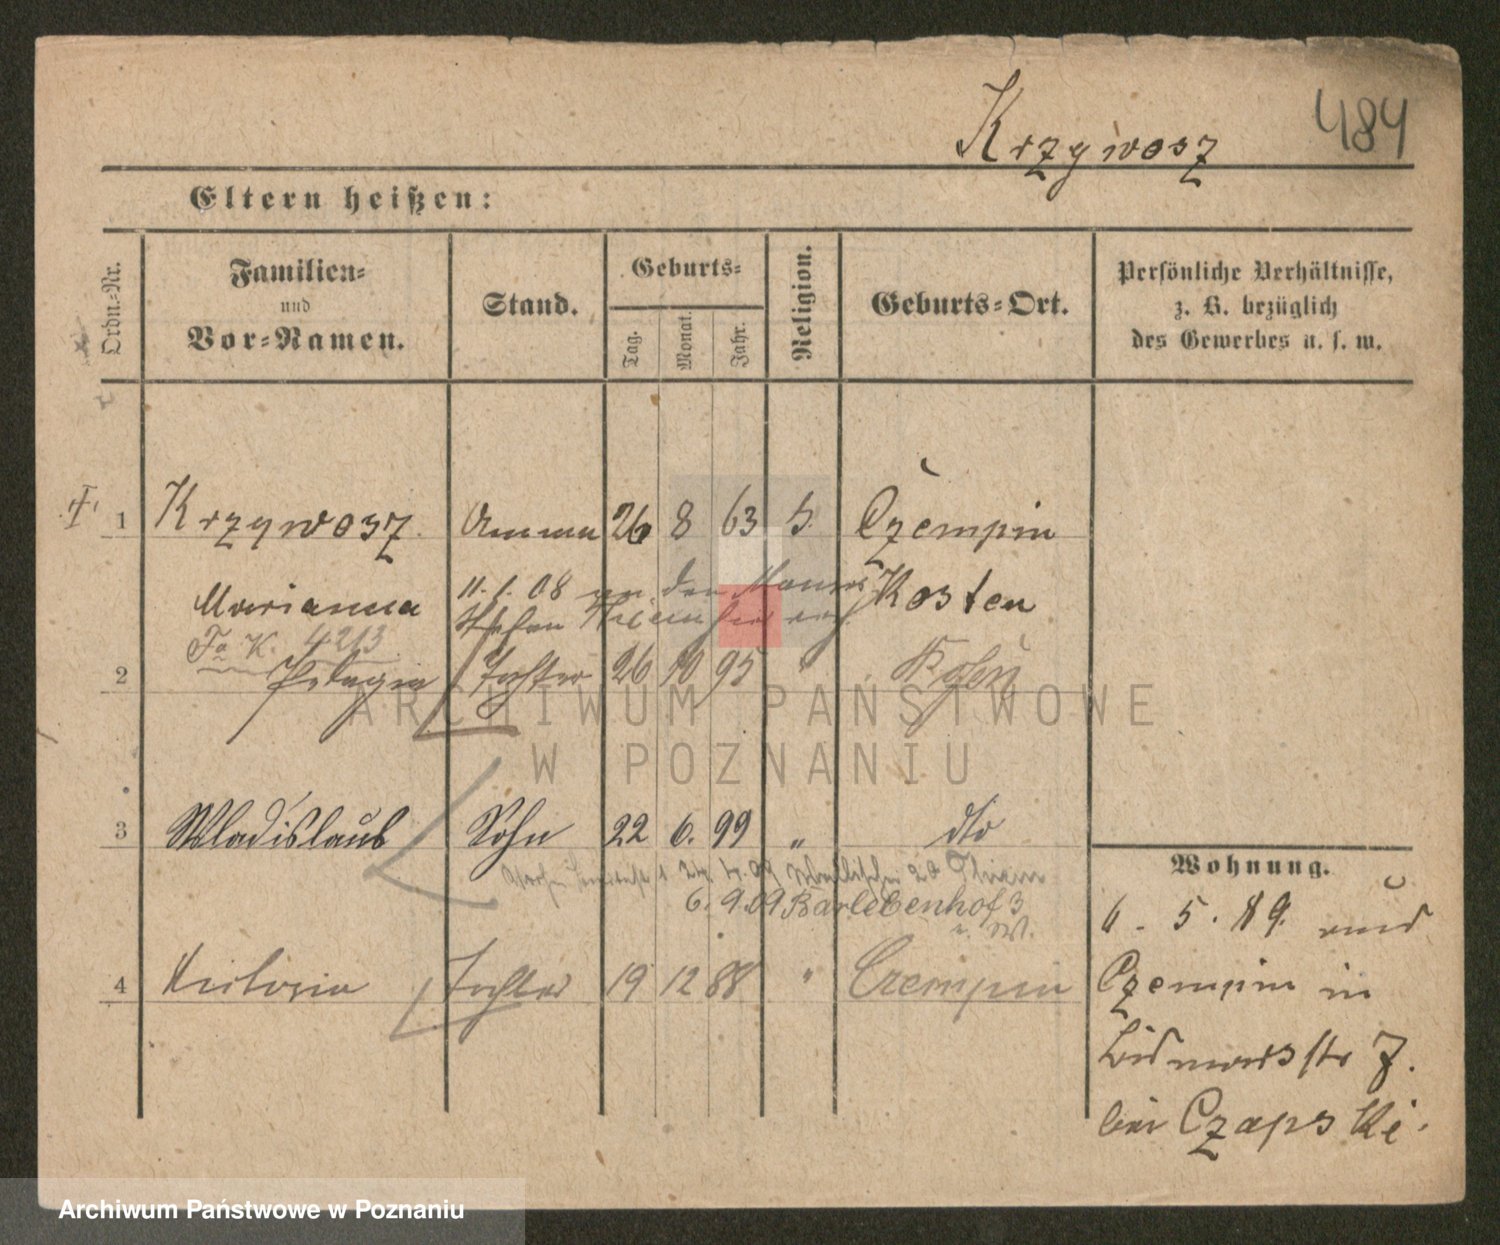 484
Krzywosz
Eltern heißen:
Ordn.-Nr.
Familien-
und
Vor-Namen.
Stand.
Geburts-
Tag.
Monat.
Jahr.
Religion.
Geburts-Ort.
Persönliche Verhältnisse,
z. B. bezüglich
des Gewerbes u. s. w.
1 Krzywosz Amme 26 8 63 Czempin
Marianna Kosten
11. 1. 08 an den
Stefan
Fa K. 4213
2 Pelagia Tochter 26 10 95 " Posen
3 Wladislaus Sohn 22 6. 99 " dto
6. 9. 09 Barlebenhof 3
u. W.
4 Tochter 19 12 88 " Czempin
Wohnung.
6. 5. 89. aus
Czempin in
Bismarckstr 7.
bei Czapski.
ARCHIWUM PAŃSTWOWE
W POZNANIU
Archiwum Państwowe w Poznaniu